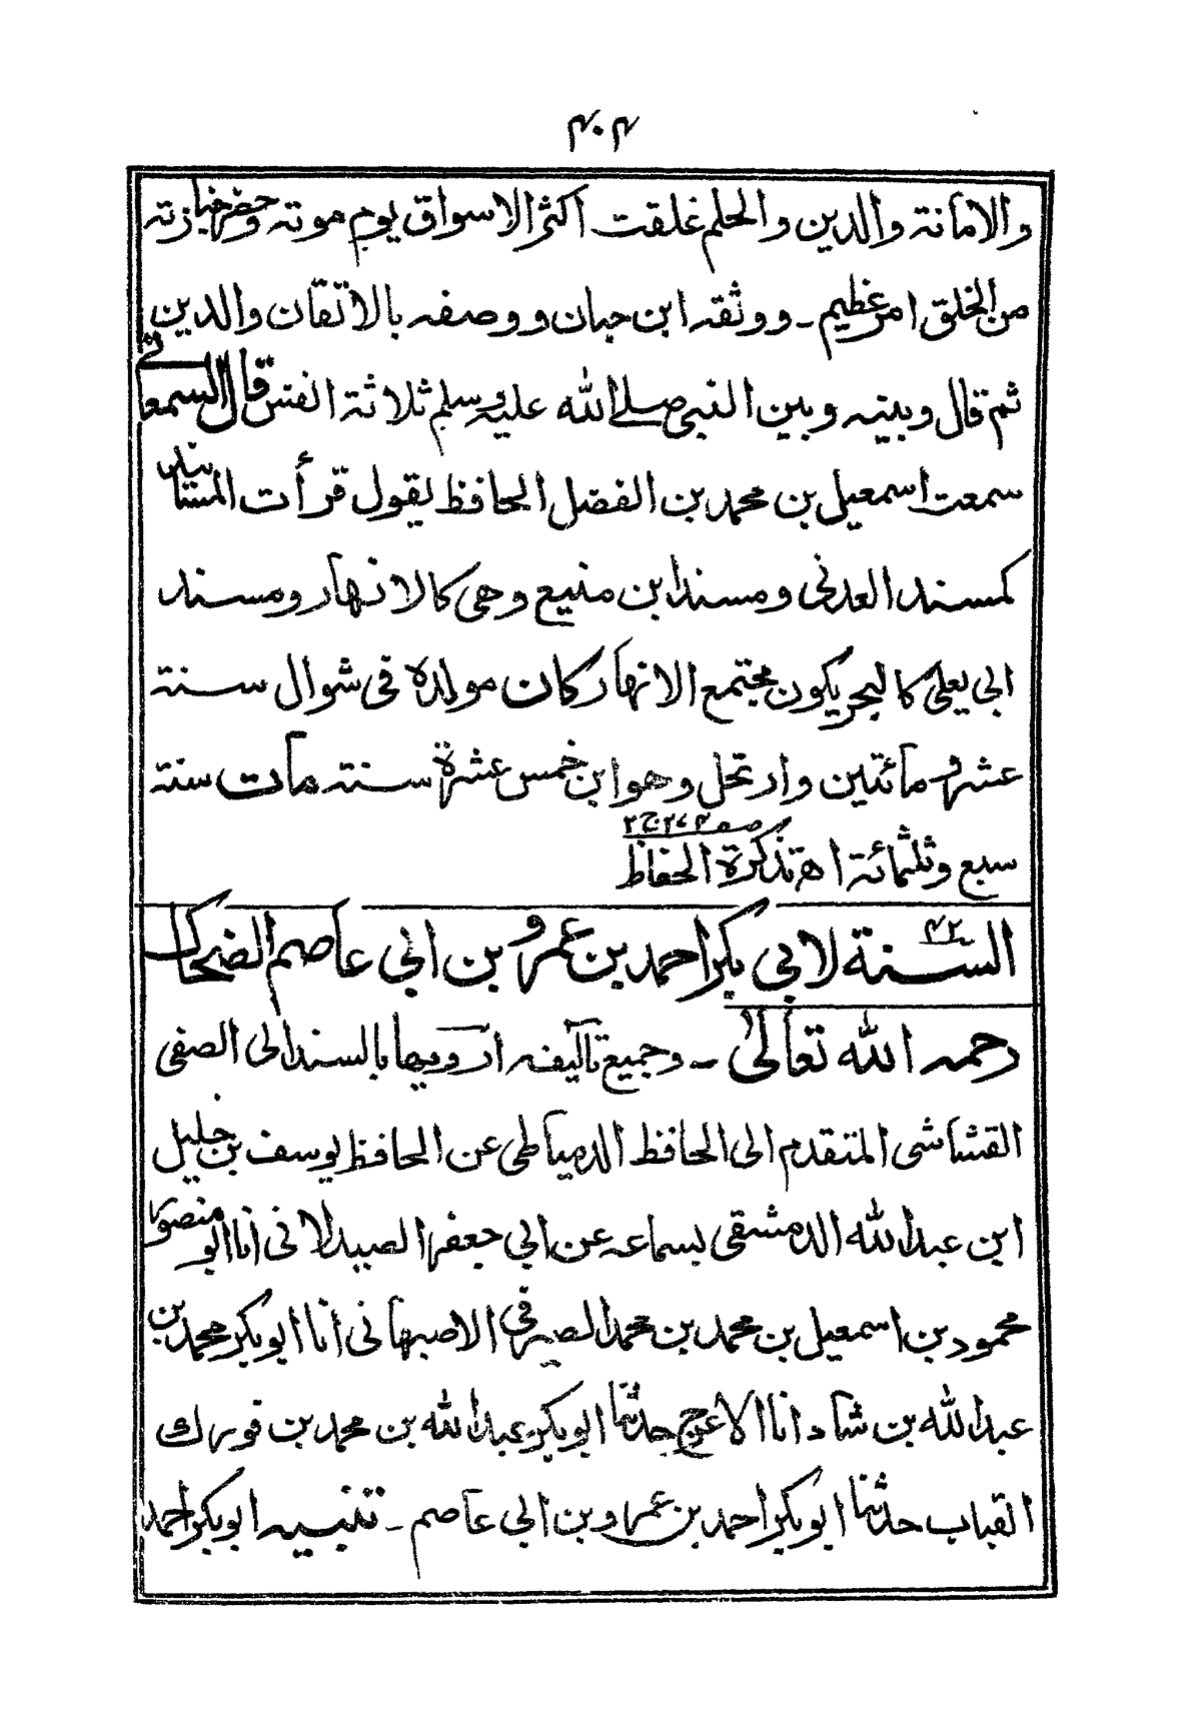 ٤٠٤
والامانة والدين والحلم غلقت اكثر الاسواق يوم موته وحضر جنازته
من الخلق امر عظيم ـ ووثقه ابن حبان ووصفه بالاتقان والدين
ثم قال وبينه وبين النبي صلے الله عليه وسلم ثلاثة انفس قال السمعانی
سمعت اسمعيل بن محمد بن الفضل الحافظ يقول قرأت المسانيد
كمسند العدنی ومسند ابن منيع وهی كالانهار ومسند
ابی يعلی كالبحر يكون مجتمع الانهار كان مولده فی شوال سنة
عشر ومائتين وارتحل وهو ابن خمس عشرة سنة مات سنة
سبع وثلثمائة اھ تذكرة الحفاظ
السنة لابی بكر احمد بن عمرو بن ابی عاصم الضحاك
رحمه الله تعالىٰ ـ وجميع تآليفه ارويها بالسند الی الصفی
القشاشی المتقدم الی الحافظ الدمياطی عن الحافظ يوسف بن خليل
ابن عبد الله الدمشقی بسماعه عن ابی جعفر الصيدلانی انا ابو منصور
محمود بن اسمعيل بن محمد بن محمد الصيرفی الاصبهانی انا ابو بكر محمد بن
عبد الله بن شاد انا الاعرج حدثنا ابو بكر عبد الله بن محمد بن فورك
القباب حدثنا ابو بكر احمد بن عمرو بن ابی عاصم ـ تنبيه ابو بكر احمد